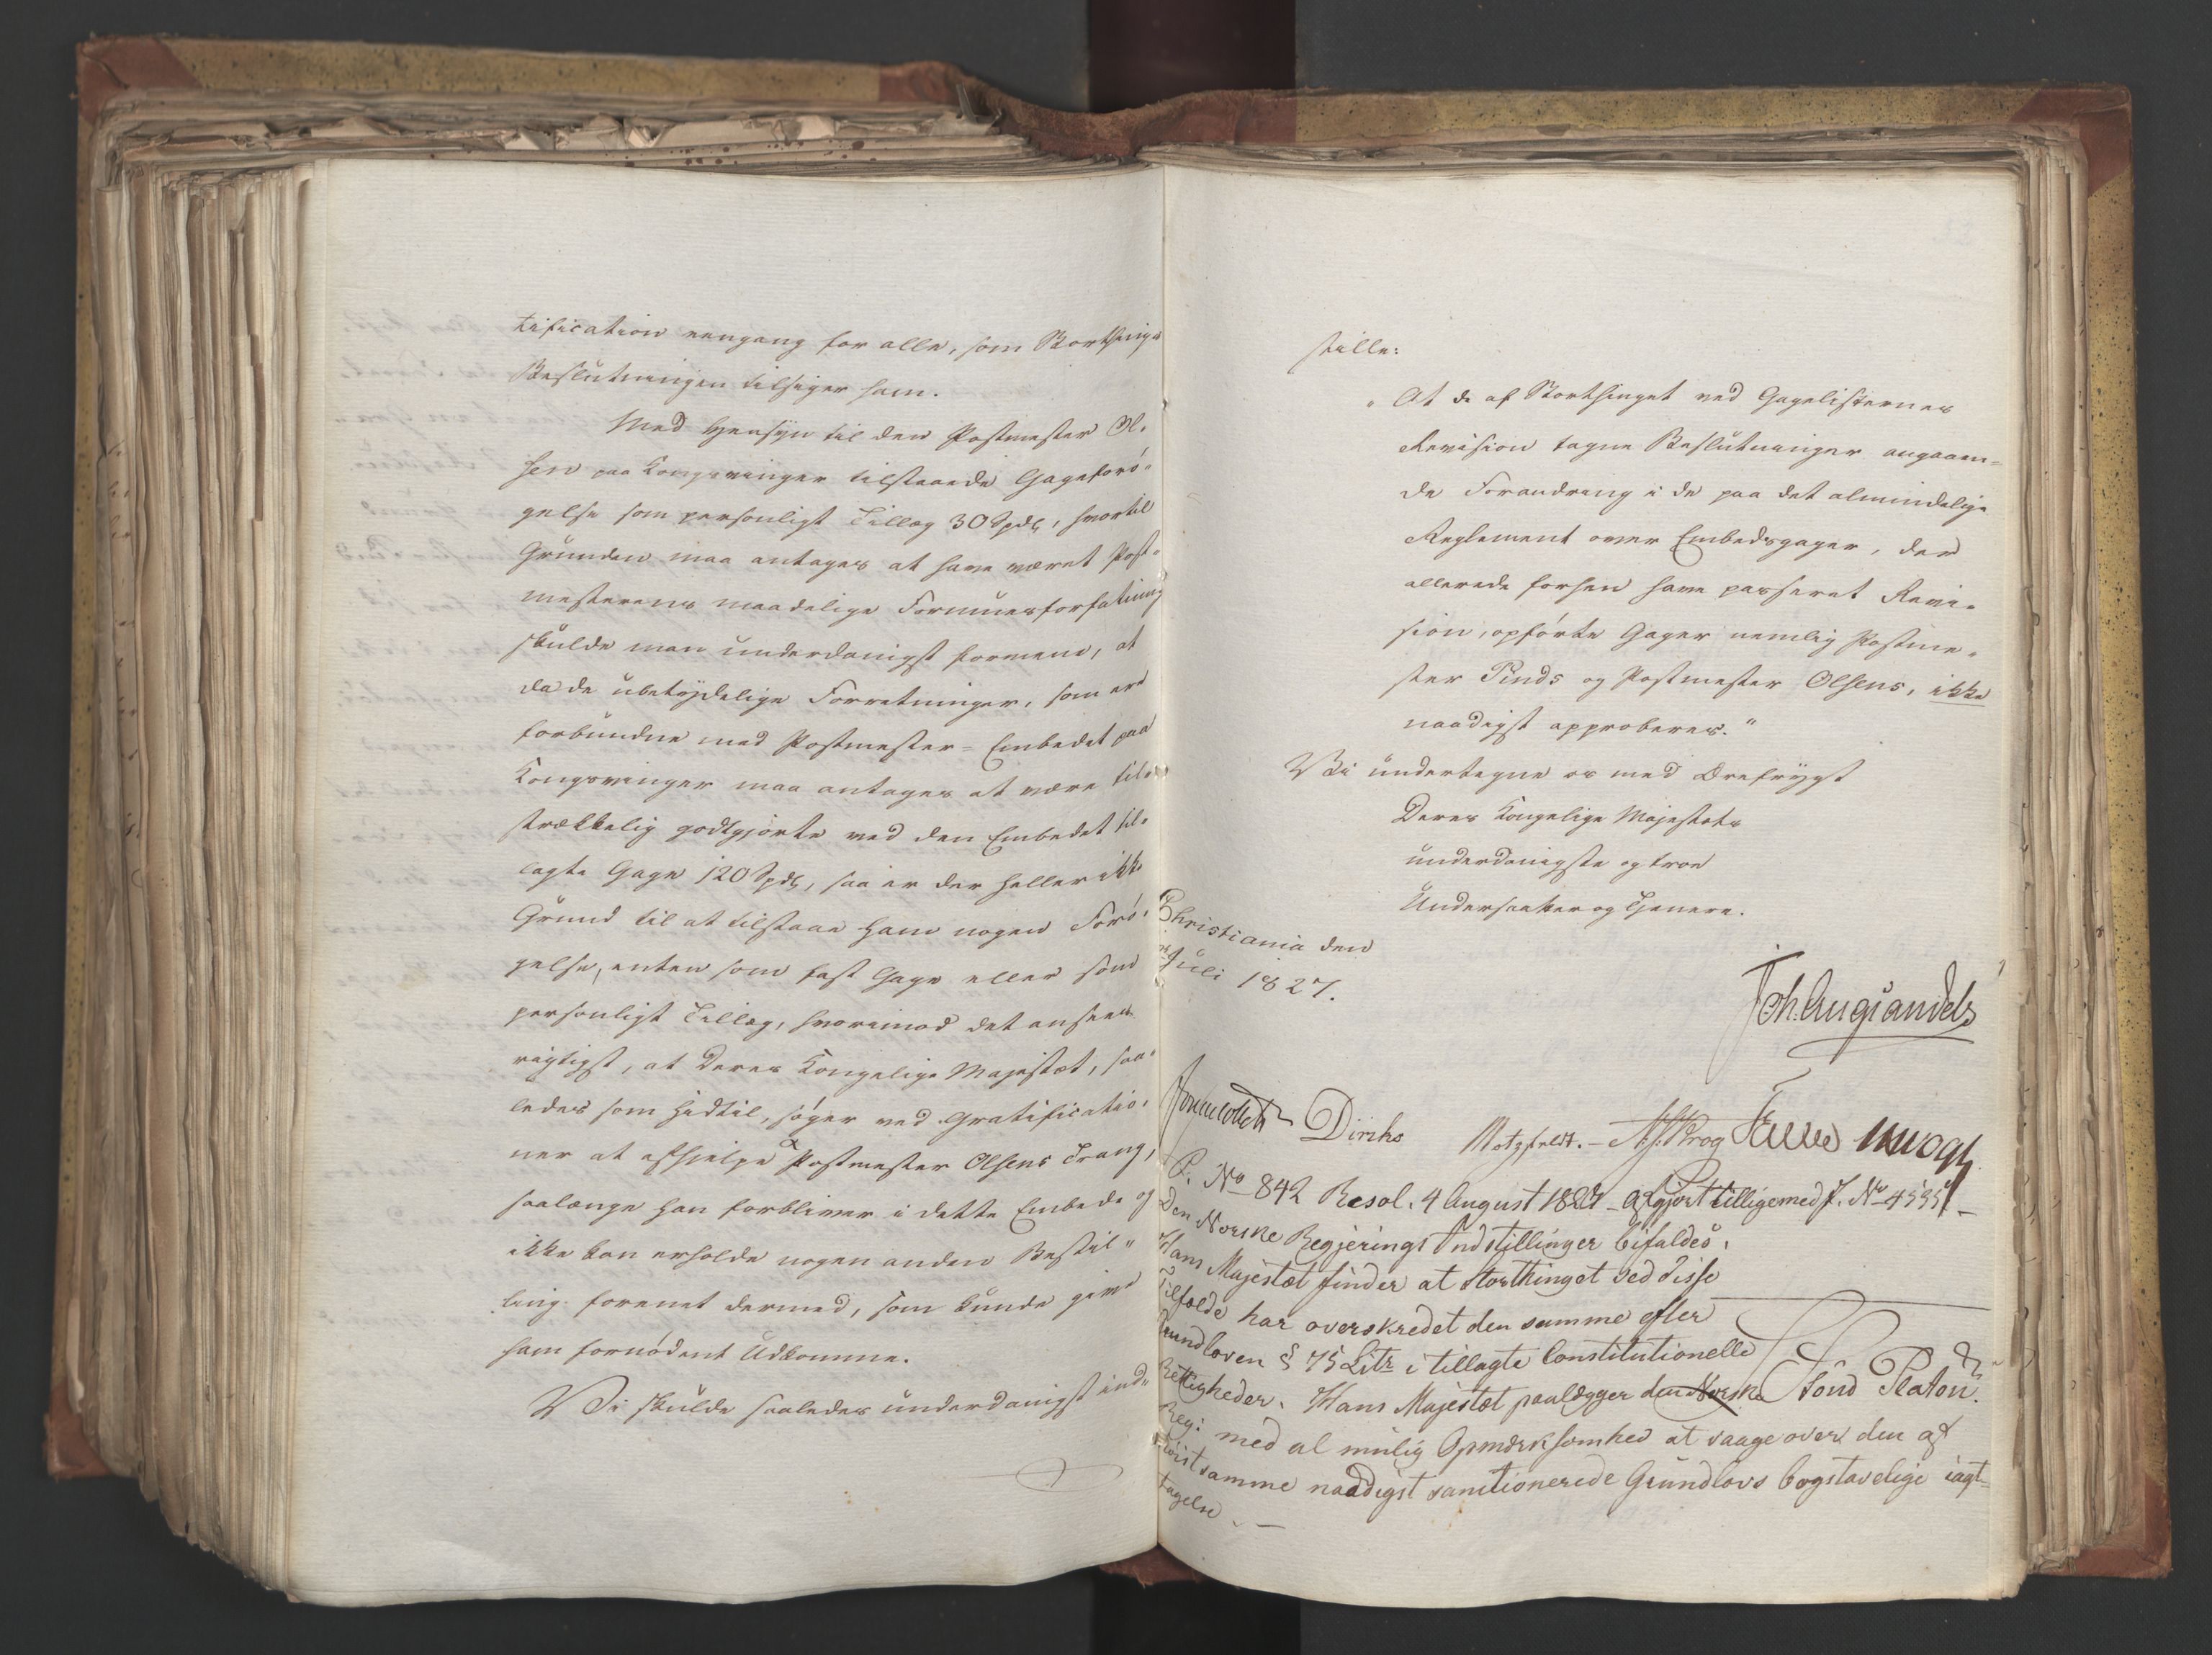 tification eengang for alle, som Storthings
Beslutningen tilsiger ham.
Med Hensyn til den Postmester Ol-
sen paa Kongsvinger tilstaaede Gageforö-
gelse som personligt Tillæg 30 Spdlr, hvortil
Grunden maa antages at have været Post-
mesterens maadelige Formuesforfatning
skulde man underdanigst formene, at
da de ubetydelige Forretninger, som ere
forbundne med Postmester-Embedet paa
Kongsvinger maa antages at være til-
strækkelig godtgjorte ved den Embedet til-
lagte Gage 120 Spdlr, saa er der heller ikke
Grund til at tilstaae ham nogen Forö-
gelse, enten som fast Gage eller som
personligt Tillæg, hvorimod det ansees
rigtigst, at Deres Kongelige Majestæt, saa-
ledes som hidtil, söger ved Gratificatio-
ner at afhjelpe Postmester Olsens Trang,
saalænge han forbliver i dette Embede og
ikke kan erholde nogen anden Bestil-
ling forenet dermed, som kunde give
ham fornödent Udkomme.
Vi skulde saaledes underdanigst ind-
stille:
"At de af Storthinget ved Gagelisternes
Revision tagne Beslutninger angaaen-
de Forandring i de paa det almindelige
Reglement over Embedsgager, der
allerede forhen have passeret Revi-
sion, opförte Gager nemlig Postme-
ster Pinds og Postmester Olsens, ikke
naadigst approberes."
Vi undertegne os med Ærefrygt
Deres Kongelige Majestæts
underdanigste og troe
Undersaatter og Tjenere.
Christiania den
Juli 1827.
Joh. Aug: Sandels
Jonas Collett Diriks Motzfeldt. - A. Krog Fasting
P. No 842 Resol. 4 August 1827 - afgjort tilligemed J. No
Den Norske Regjerings Indstillinger bifaldes.
Hans Majestæt finder at Storthinget ved disse
Tilfælde har overskredet den samme efter
Grundloven § 75 Litr i tillagte Constitutionelle
Rettigheder. Hans Majestæt paalægger den Norske
Reg: med al mulig Opmærksomhed at vaage over den af
Höistsamme naadigst sanctionerede Grundlovs bogstavelige iagt-
tagelse. -